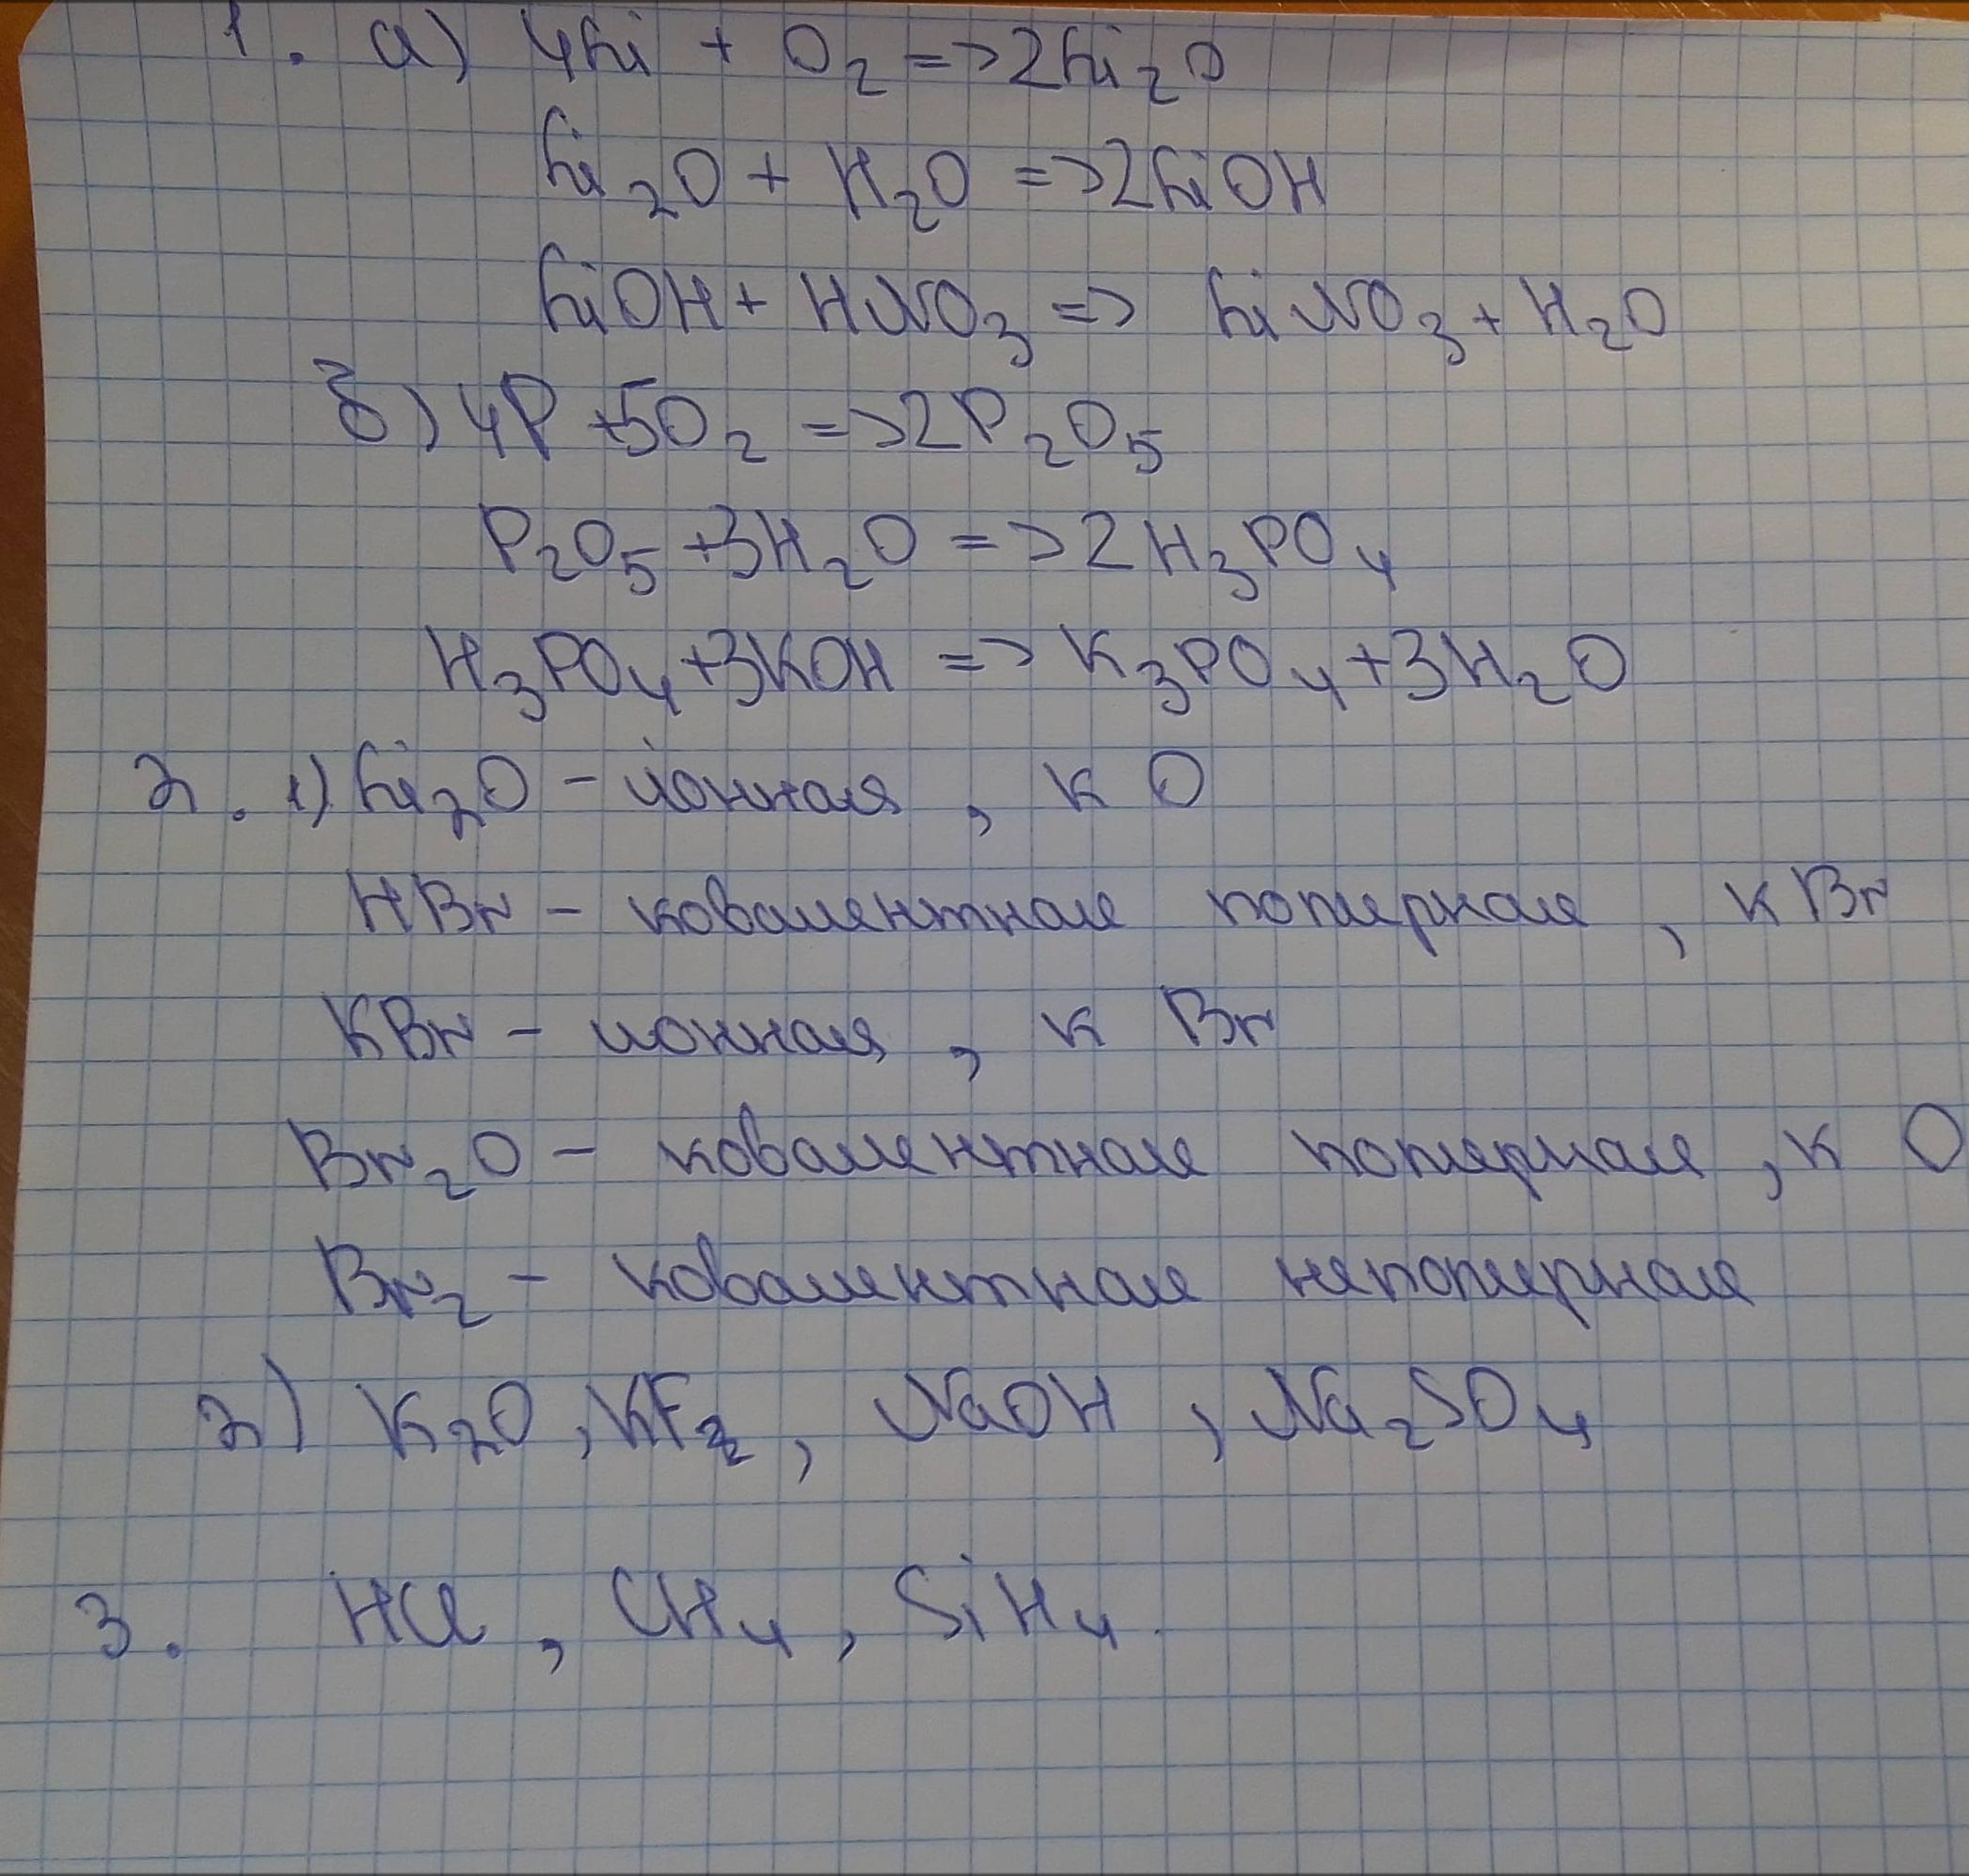 1. а) 4Li + O2 => 2Li2O
Li2O + H2O => 2LiOH
LiOH + HNO3 => LiNO3 + H2O
б) 4P + 5O2 => 2P2O5
P2O5 + 3H2O => 2H3PO4
H3PO4 + 3KOH => K3PO4 + 3H2O
2. 1) Li2O - ионная, к O
HBr - ковалентная полярная, к Br
KBr - ионная, к Br
Br2O - ковалентная полярная, к O
Br2 - ковалентная неполярная
2) K2O, KF2, NaOH, Na2SO4
3. HCl, CH4, SiH4.